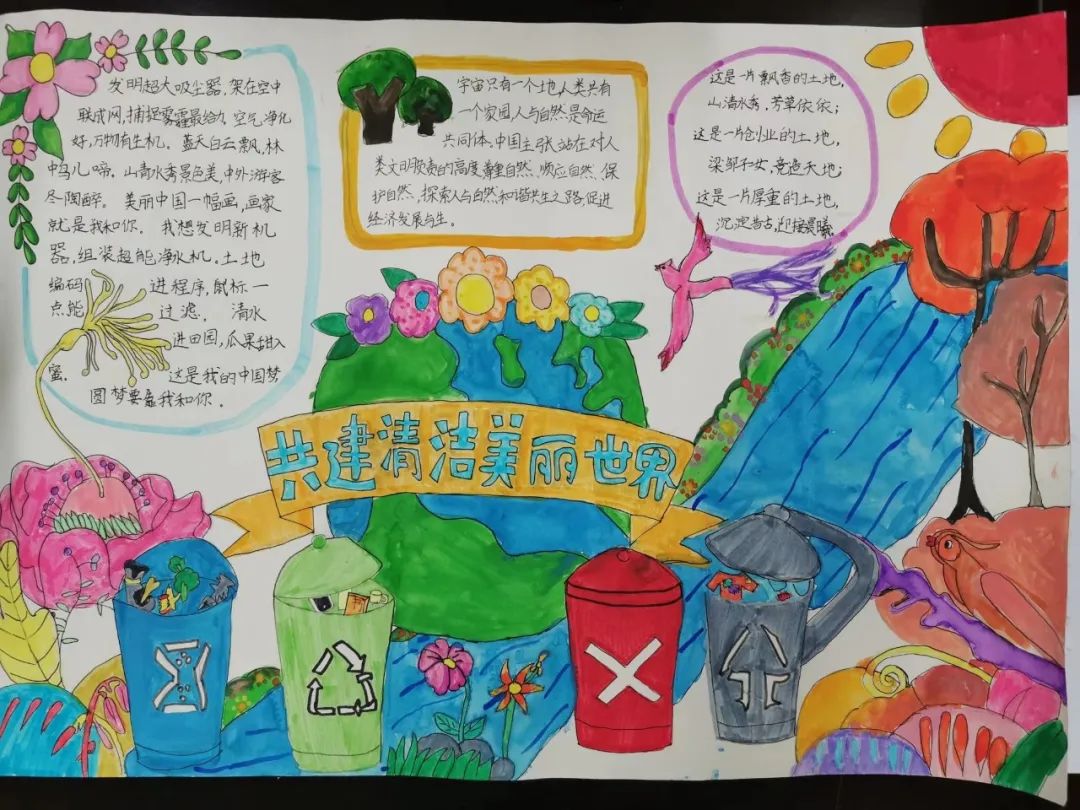 发明超大吸尘器,架在空中
联成网,捕捉雾霾最给力 空气净化
好,万物有生机。蓝天白云飘,林
中鸟儿啼。山青水秀景色美,中外游客
尽陶醉。美丽中国一幅画,画家
就是我和你。我想发明新机
器,组装超能净水机。土地
编码 进程序,鼠标一
点能 过滤. 清水
进田园,瓜果甜入
蜜. 这是我的中国梦
圆梦要靠我和你.
宇宙只有一个地,人类共有
一个家园,人与自然是命运
共同体,中国主张站在对人
类文明负责的高度,尊重自然、顺应自然、保
护自然,探索人与自然和谐共生之路,促进
经济发展与生.
这是一片飘香的土地,
山清水秀,芳草依依;
这是一片创业的土地,
梁邹不女,竞造天地;
这是一片厚重的土地,
沉淀古,迎接晨曦
共建清洁美丽世界